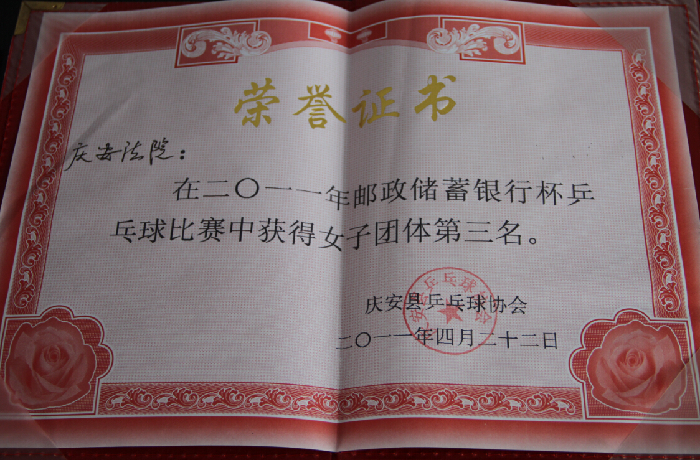 荣誉证书
庆安法院：
在二〇一一年邮政储蓄银行杯乒
乓球比赛中获得女子团体第三名。
庆安县乒乓球协会
二〇一一年四月二十二日